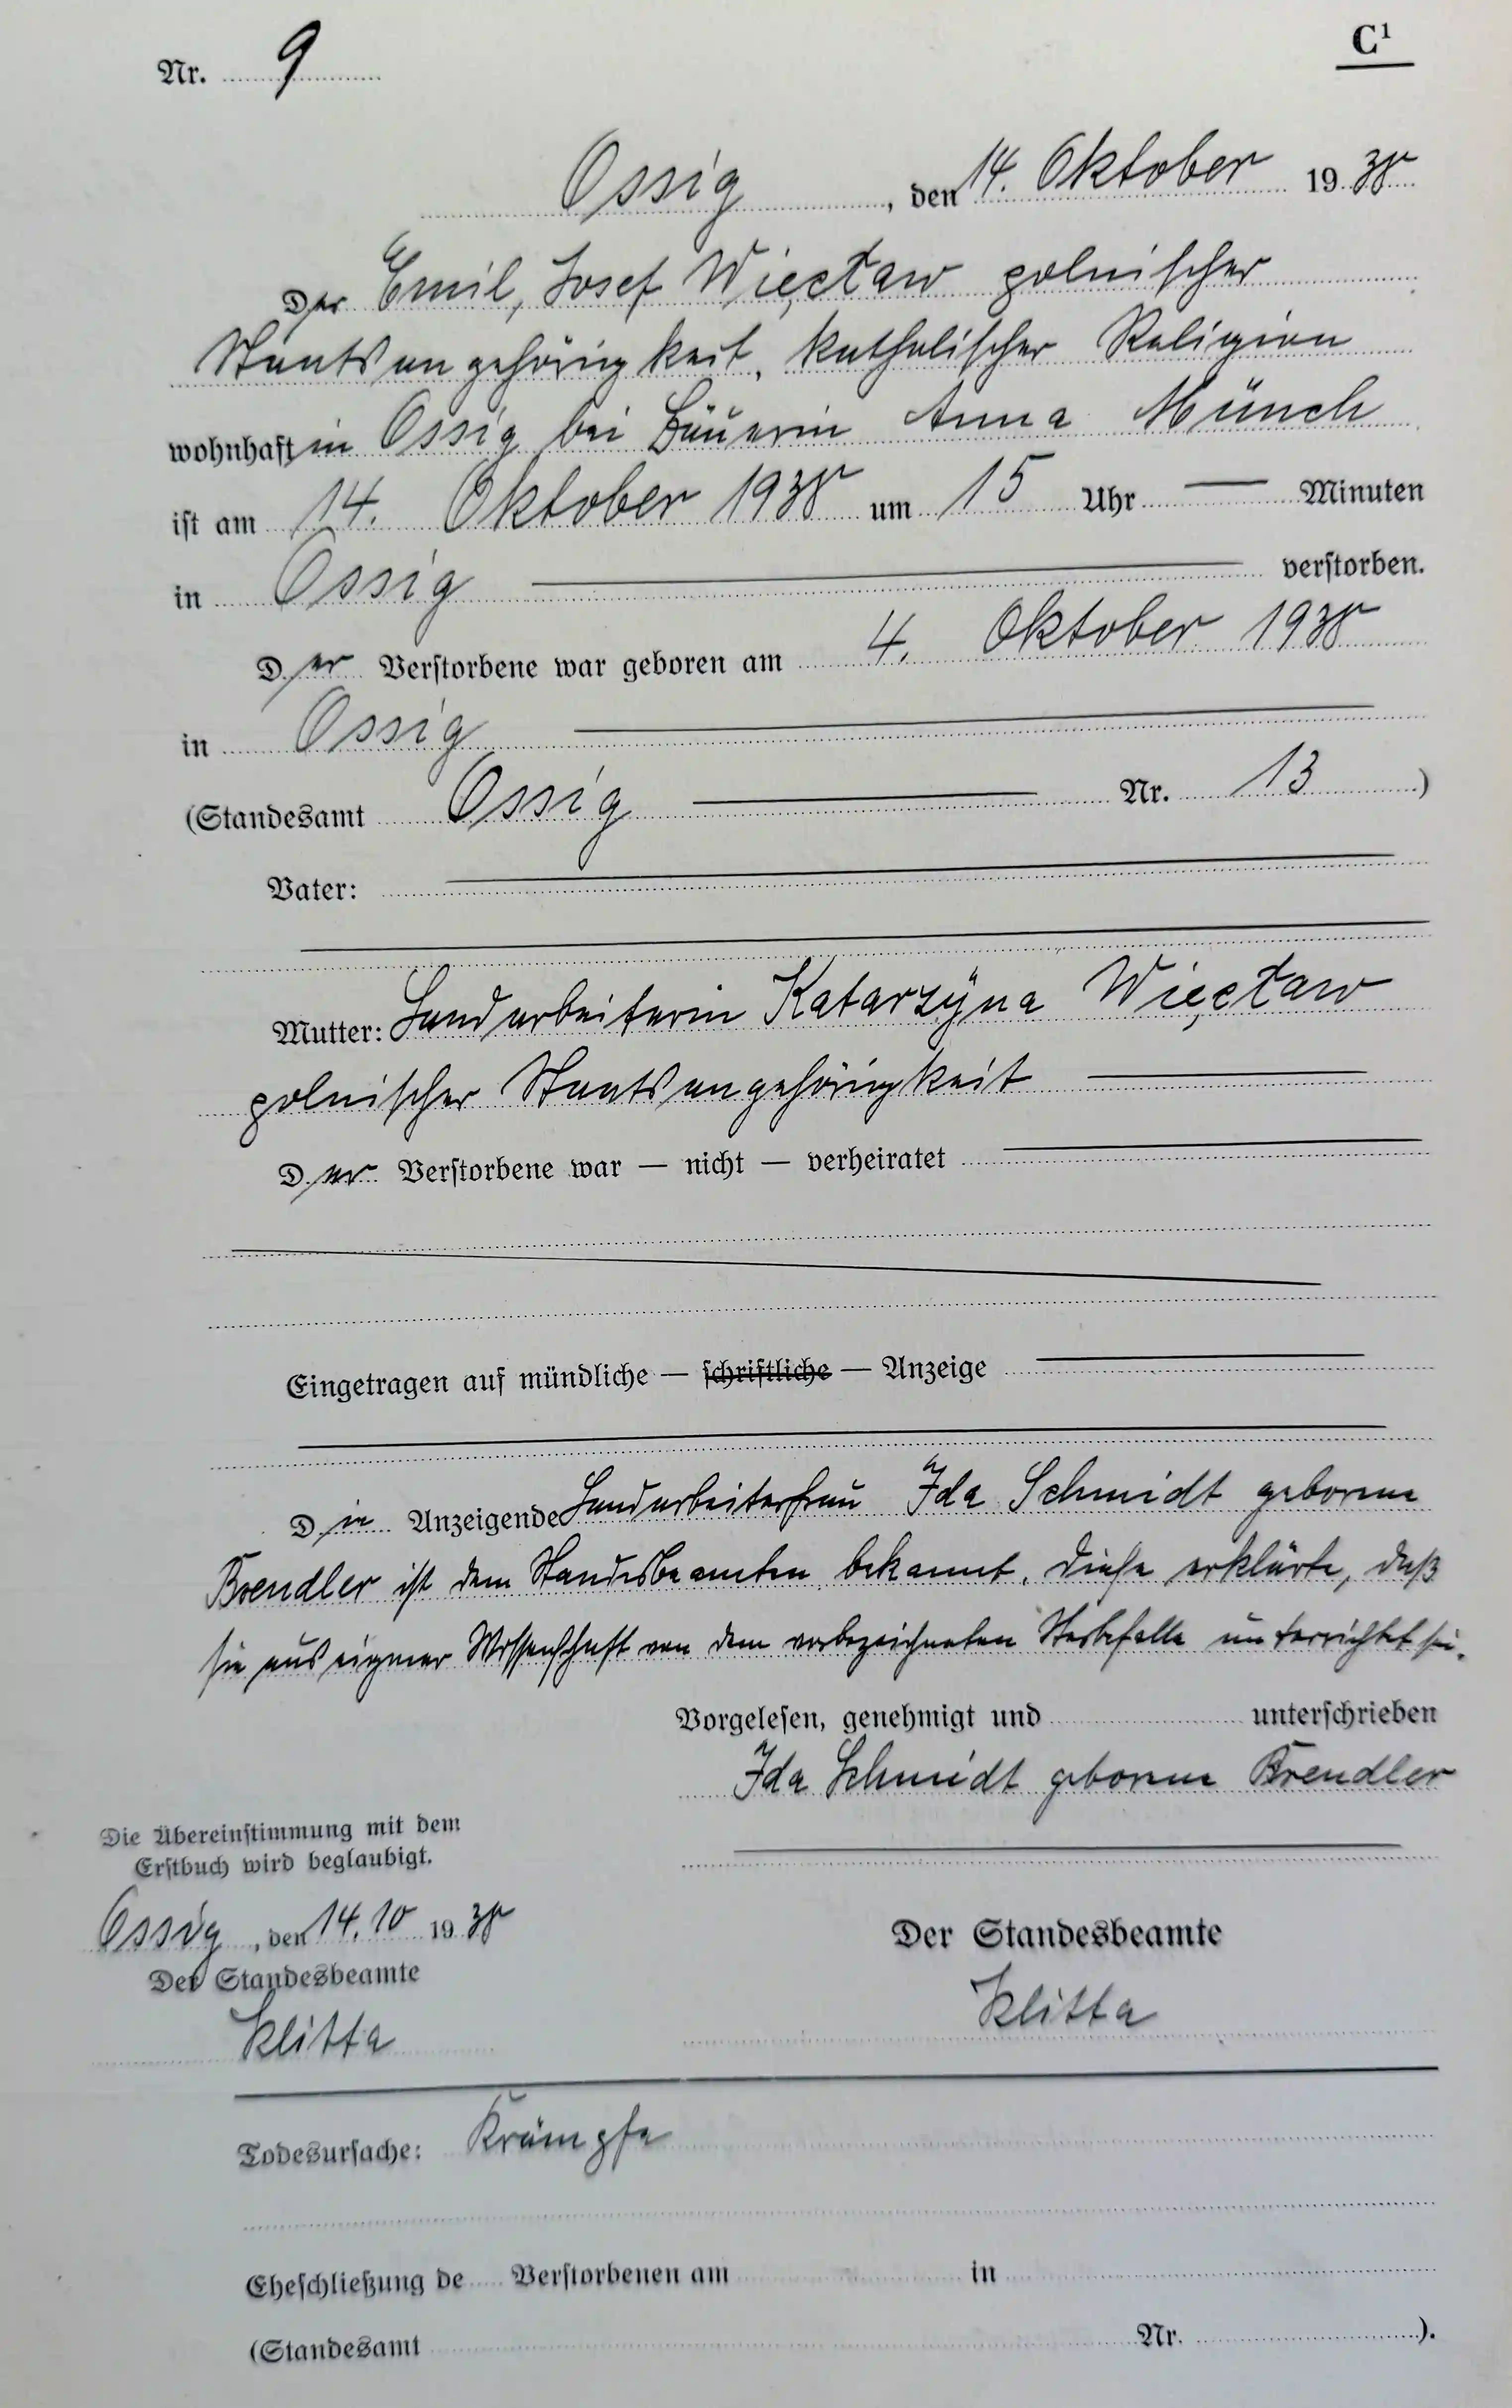 C¹
Nr. 9
Ossig, den 14. Oktober 1938
Der Emil, Josef Więcław polnischer
Staatsangehörigkeit, katholischer Religion
wohnhaft in Ossig bei Bäuerin Anna Münch
ist am 14. Oktober 1938 um 15 Uhr — Minuten
in Ossig — verstorben.
Der Verstorbene war geboren am 4. Oktober 1938
in Ossig —
(Standesamt Ossig — Nr. 13)
Vater: —
Mutter: Landarbeiterin Katarzÿna Więcław
polnischer Staatsangehörigkeit —
Der Verstorbene war — nicht — verheiratet —
Eingetragen auf mündliche — schriftliche — Anzeige —
Die Anzeigende Landarbeiterfrau Ida Schmidt geborene
Brendler ist dem Standesbeamten bekannt. Diese erklärte, daß
sie aus eigener Wissenschaft von dem vorbezeichneten Sterbefalle unterrichtet sei.
Vorgelesen, genehmigt und unterschrieben
Ida Schmidt geborene Brendler
Die Übereinstimmung mit dem
Erstbuch wird beglaubigt.
Ossig, den 14.10 1938
Der Standesbeamte
Klitta
Der Standesbeamte
Klitta
Todesursache: Krämpfe
Eheschließung de Verstorbenen am in
(Standesamt Nr. ).